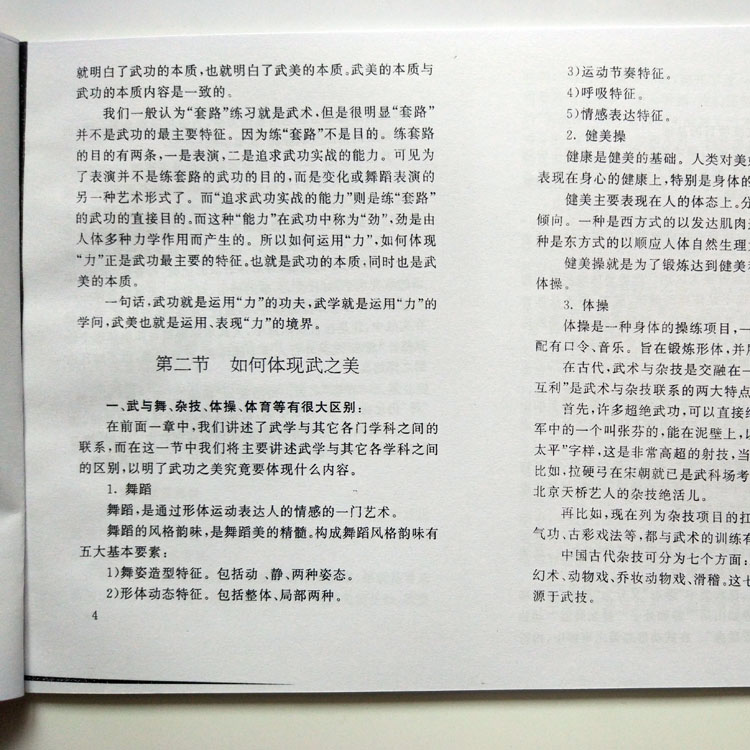 就明白了武功的本质,也就明白了武美的本质。武美的本质与
武功的本质内容是一致的。
我们一般认为“套路”练习就是武术,但是很明显“套路”
并不是武功的最主要特征。因为练“套路”不是目的。练套路
的目的有两条,一是表演,二是追求武功实战的能力。可见为
了表演并不是练套路的武功的目的,而是变化或舞蹈表演的
另一种艺术形式了。而“追求武功实战的能力”则是练“套路”
的武功的直接目的。而这种“能力”在武功中称为“劲”,劲是由
人体多种力学作用而产生的。所以如何运用“力”,如何体现
“力”正是武功最主要的特征。也就是武功的本质,同时也是武
美的本质。
一句话,武功就是运用“力”的功夫,武学就是运用“力”的
学问,武美也就是运用、表现“力”的境界。
第二节 如何体现武之美
一、武与舞、杂技、体操、体育等有很大区别:
在前面一章中,我们讲述了武学与其它各门学科之间的
联系,而在这一节中我们将主要讲述武学与其它各学科之间
的区别,以明了武功之美究竟要体现什么内容。
1. 舞蹈
舞蹈,是通过形体运动表达人的情感的一门艺术。
舞蹈的风格韵味,是舞蹈美的精髓。构成舞蹈风格韵味有
五大基本要素:
1)舞姿造型特征。包括动、静、两种姿态。
2)形体动态特征。包括整体、局部两种。
4
3)运动节奏特征。
4)呼吸特征。
5)情感表达特征。
2. 健美操
健康是健美的基础。人类对美
表现在身心的健康上,特别是身体的
健美主要表现在人的体态上。分
倾向。一种是西方式的以发达肌肉
种是东方式的以顺应人体自然生理
健美操就是为了锻炼达到健美
体操。
3. 体操
体操是一种身体的操练项目,一
配有口令、音乐。旨在锻炼形体,并
在古代,武术与杂技是交融在一
互利”是武术与杂技联系的两大特点
首先,许多超绝武功,可以直接
军中的一个叫张芬的,能在泥壁上,以
太平”字样,这是非常高超的射技,当
比如,拉硬弓在宋朝就已是武科场考
北京天桥艺人的杂技绝活儿。
再比如,现在列为杂技项目的扛
气功、古彩戏法等,都与武术的训练有
中国古代杂技可分为七个方面:
幻术、动物戏、乔妆动物戏、滑稽。这七
源于武技。